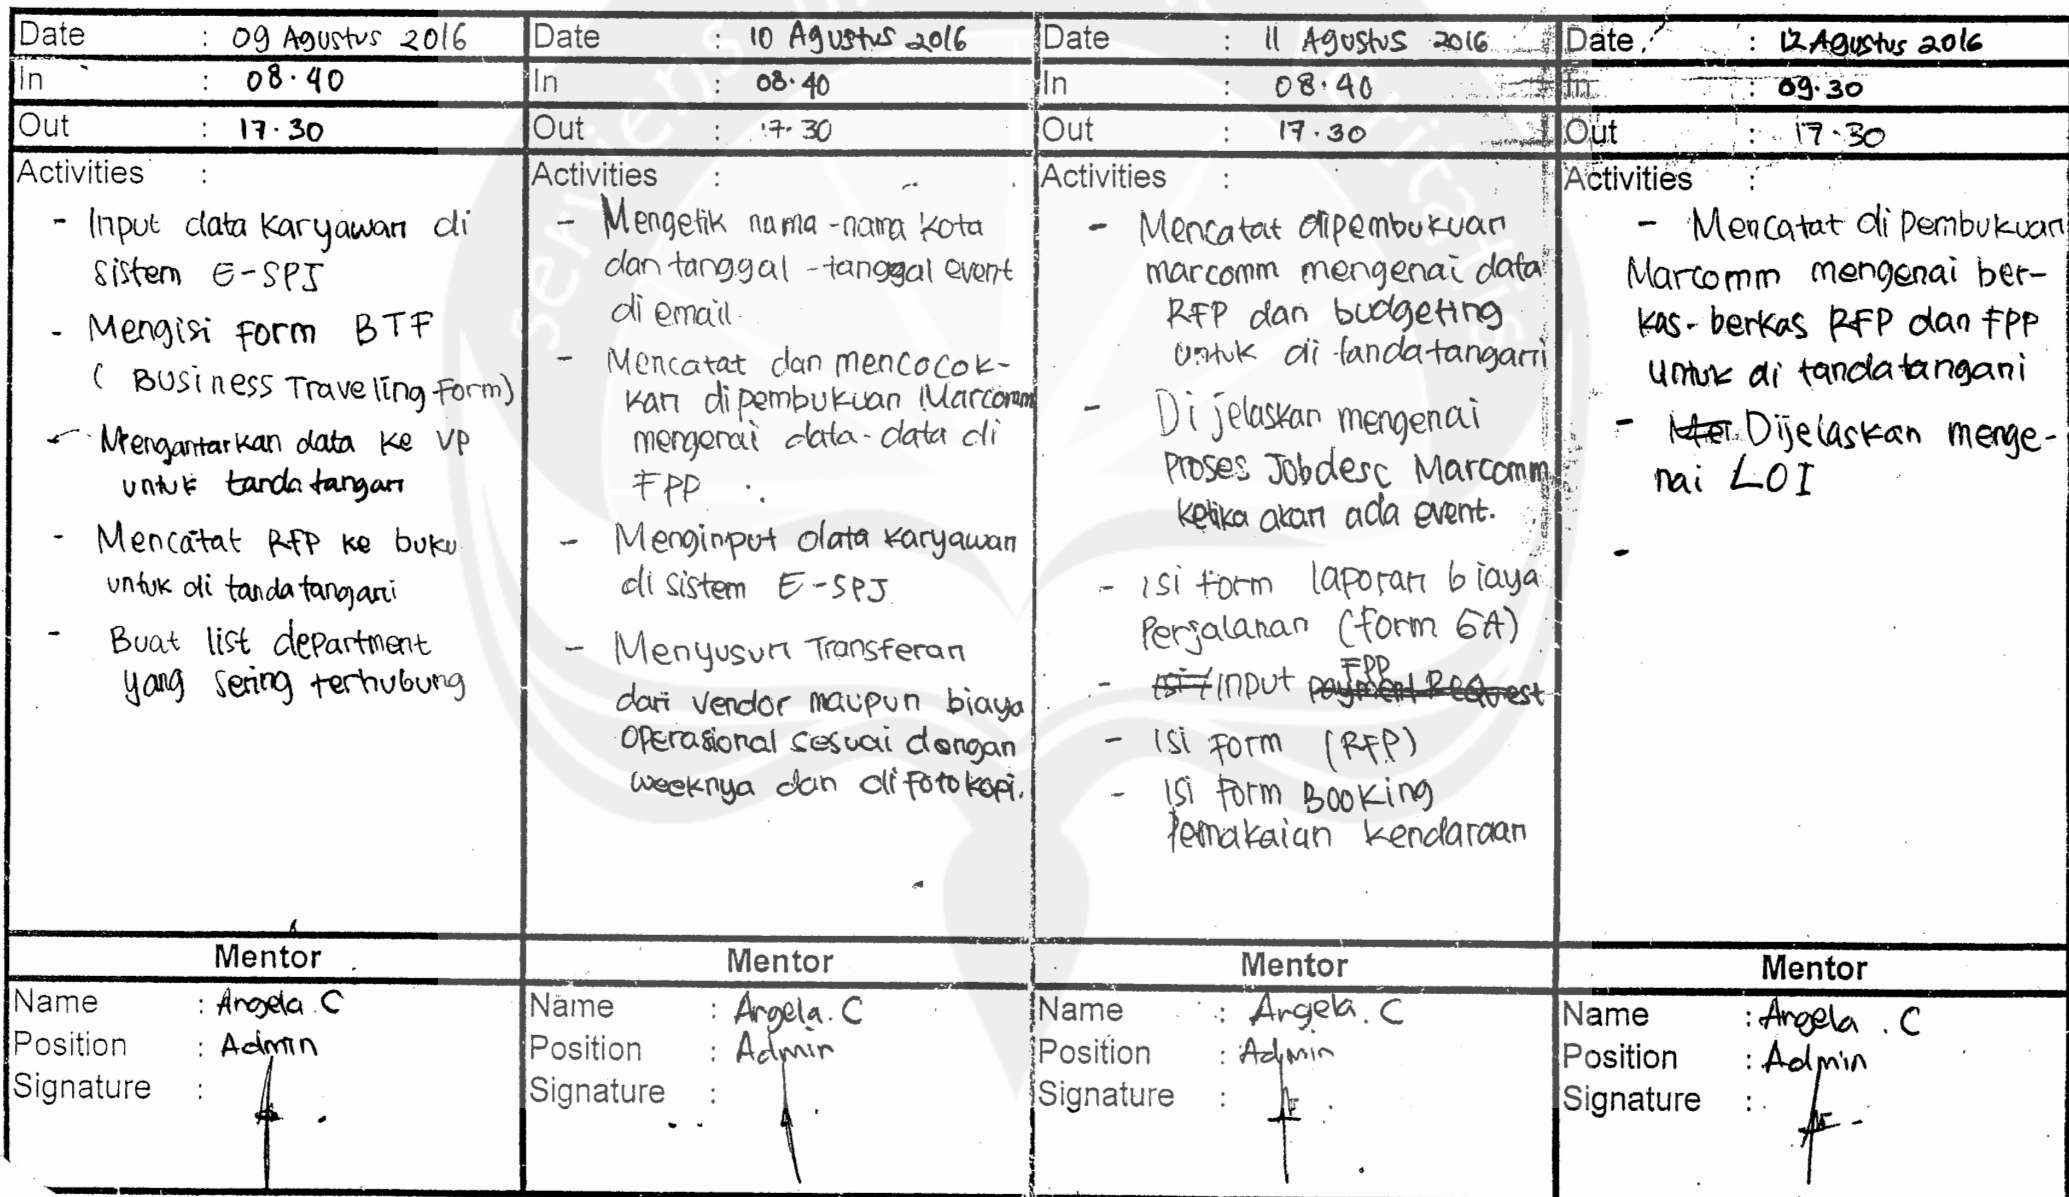 Date : 09 Agustus 2016
In : 08.40
Out : 17.30
Activities :
- Input data karyawan di
sistem E-SPJ
- Mengisi form BTF
( Business Traveling Form)
- Mengantarkan data ke VP
untuk tanda tangan
- Mencatat RFP ke buku
untuk di tanda tangani
- Buat list department
yang sering terhubung
Mentor
Name : Angela . C
Position : Admin
Signature :
Date : 10 Agustus 2016
In : 08.40
Out : 17.30
Activities :
- Mengetik nama-nama kota
dan tanggal-tanggal event
di email.
- Mencatat dan mencocok-
kan di pembukuan Marcomm
mengenai data-data di
FPP
- Menginput data karyawan
di sistem E-SPJ
- Menyusun Transferan
dari vendor maupun biaya
operasional sesuai dengan
weeknya dan di fotokopi.
Mentor
Name : Angela . C
Position : Admin
Signature :
Date : 11 Agustus 2016
In : 08.40
Out : 17.30
Activities :
- Mencatat dipembukuan
marcomm mengenai data
RFP dan budgeting
untuk di tandatangani
- Di jelaskan mengenai
proses Jobdesc Marcomm
ketika akan ada event.
- Isi form laporan biaya
Perjalanan (form 6A)
- input FPP payment Request
- Isi form (RFP)
- Isi form Booking
Pemakaian kendaraan
Mentor
Name : Angela . C
Position : Admin
Signature :
Date : 12 Agustus 2016
In : 09.30
Out : 17.30
Activities :
- Mencatat di pembukuan
Marcomm mengenai ber-
kas-berkas RFP dan FPP
untuk di tandatangani
- Dijelaskan menge-
nai LOI
-
Mentor
Name : Angela . C
Position : Admin
Signature :